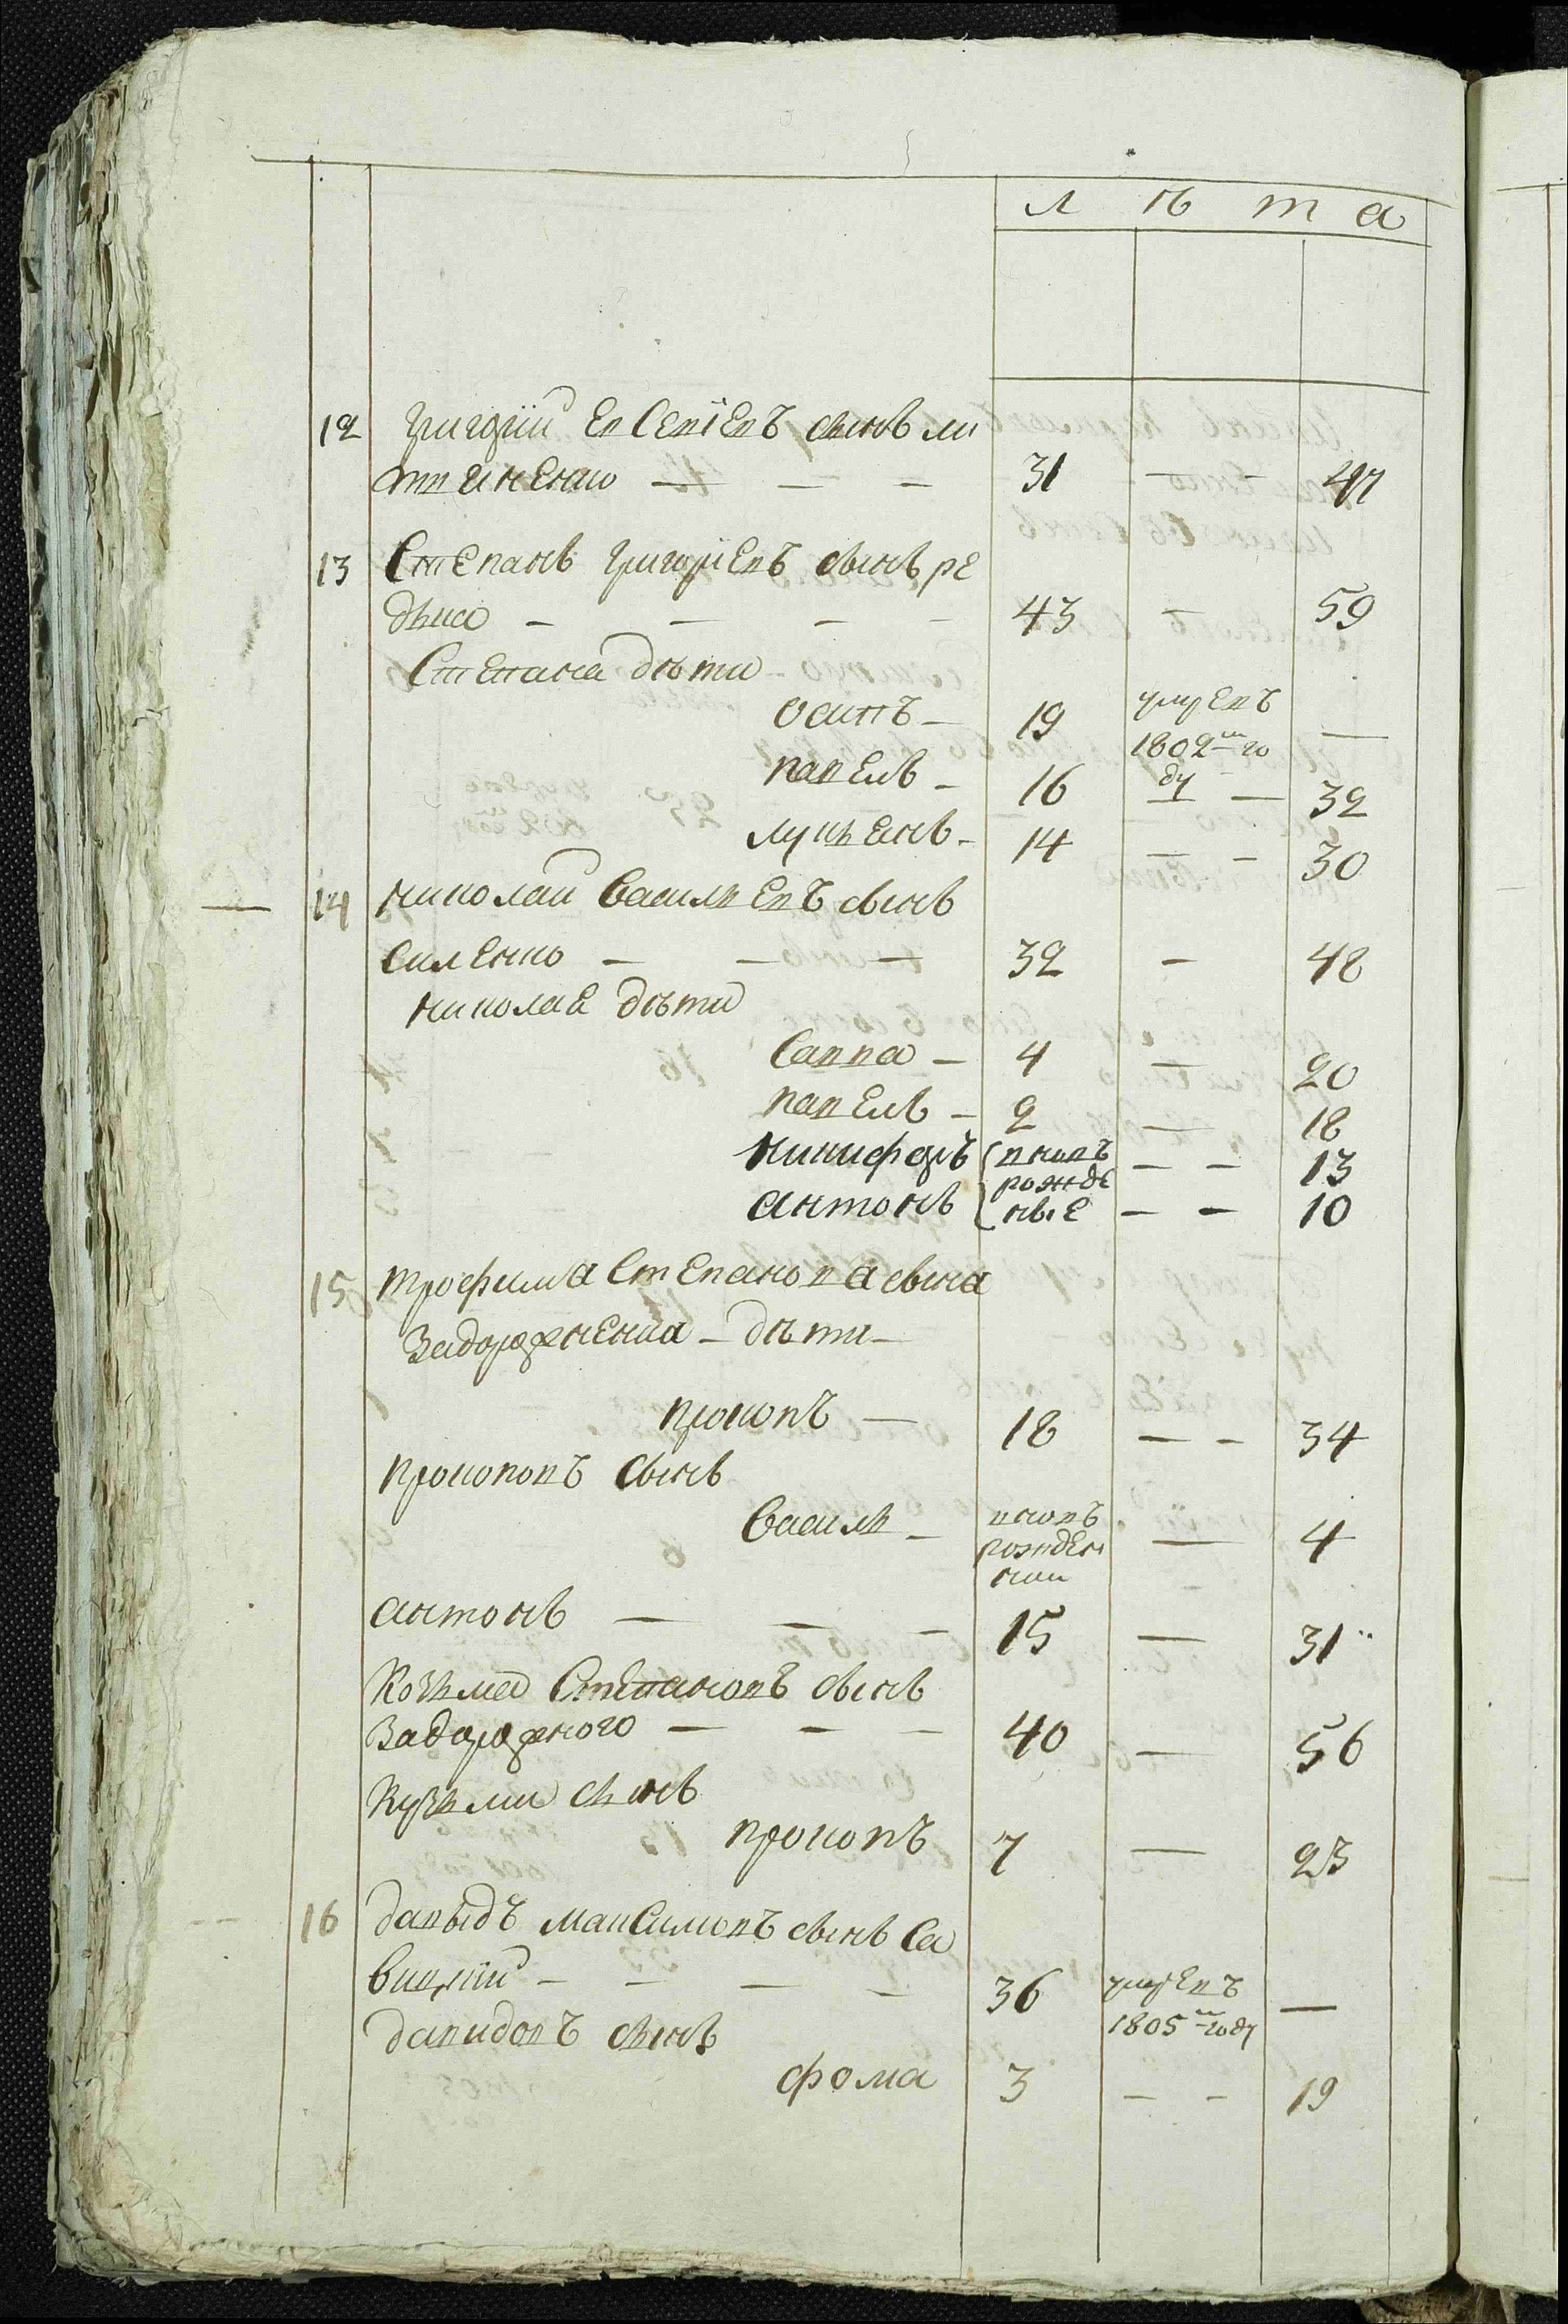 Л Ѣ т а
12 Григорій Евсеніевъ сынъ ли
твиненко — — — 31 — - 47
13 Степанъ Григоріевъ сынъ ре
дька — — — — 43 — 59
Степана дѣти
Осипъ — 19 умревъ 1802 го ду —
Павелъ — 16 — — 32
Лукьянъ — 14 — — 30
14 Николай Васильевъ сынъ
Силенко — — — 32 — 48
Николае дѣти
Савва — 4 — 20
Павелъ — 2 — 18
Никифоръ вновь — — 13
рожде
Антонъ ные — — 10
15 Трофима Степанова сына
Задорожненка — дѣти —
Прокопъ — 18 — — 34
Прокоповъ сынъ
Василь — вновь рожден ний — 4
Антонъ — — — 15 — 31
Козьма Степановъ сынъ
Задорожного — — — 40 — 56
Кузьми сынъ
Прокопъ 7 — 23
16 Давыдъ Максимовъ сынъ Са
вицкій — — — — 36 умревъ 1805 году —
Давидовъ сынъ
Фома 3 — — 19